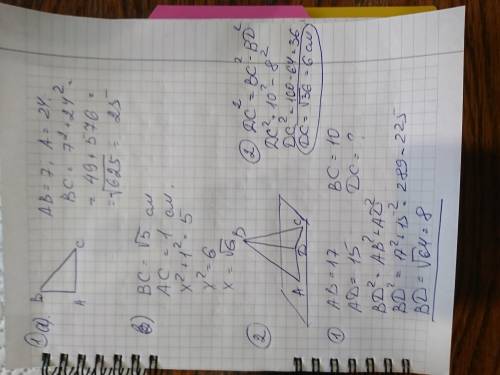 ① а). B
A C
AB = 7, A = 24
BC = 7² + 24² =
= 49 + 576 =
= √625 = 25
в) BC = √5 см
AC = 1 см.
x² + 1² = 5
x² = 6
x = √6
② B
A D C
① AB = 17 BC = 10
AD = 15 DC = ?
BD² = AB² - AD²
BD² = 17² - 15² = 289 - 225
BD = √64 = 8
② DC² = BC² - BD²
DC² = 10² - 8²
DC² = 100 - 64 = 36
DC = √36 = 6 см